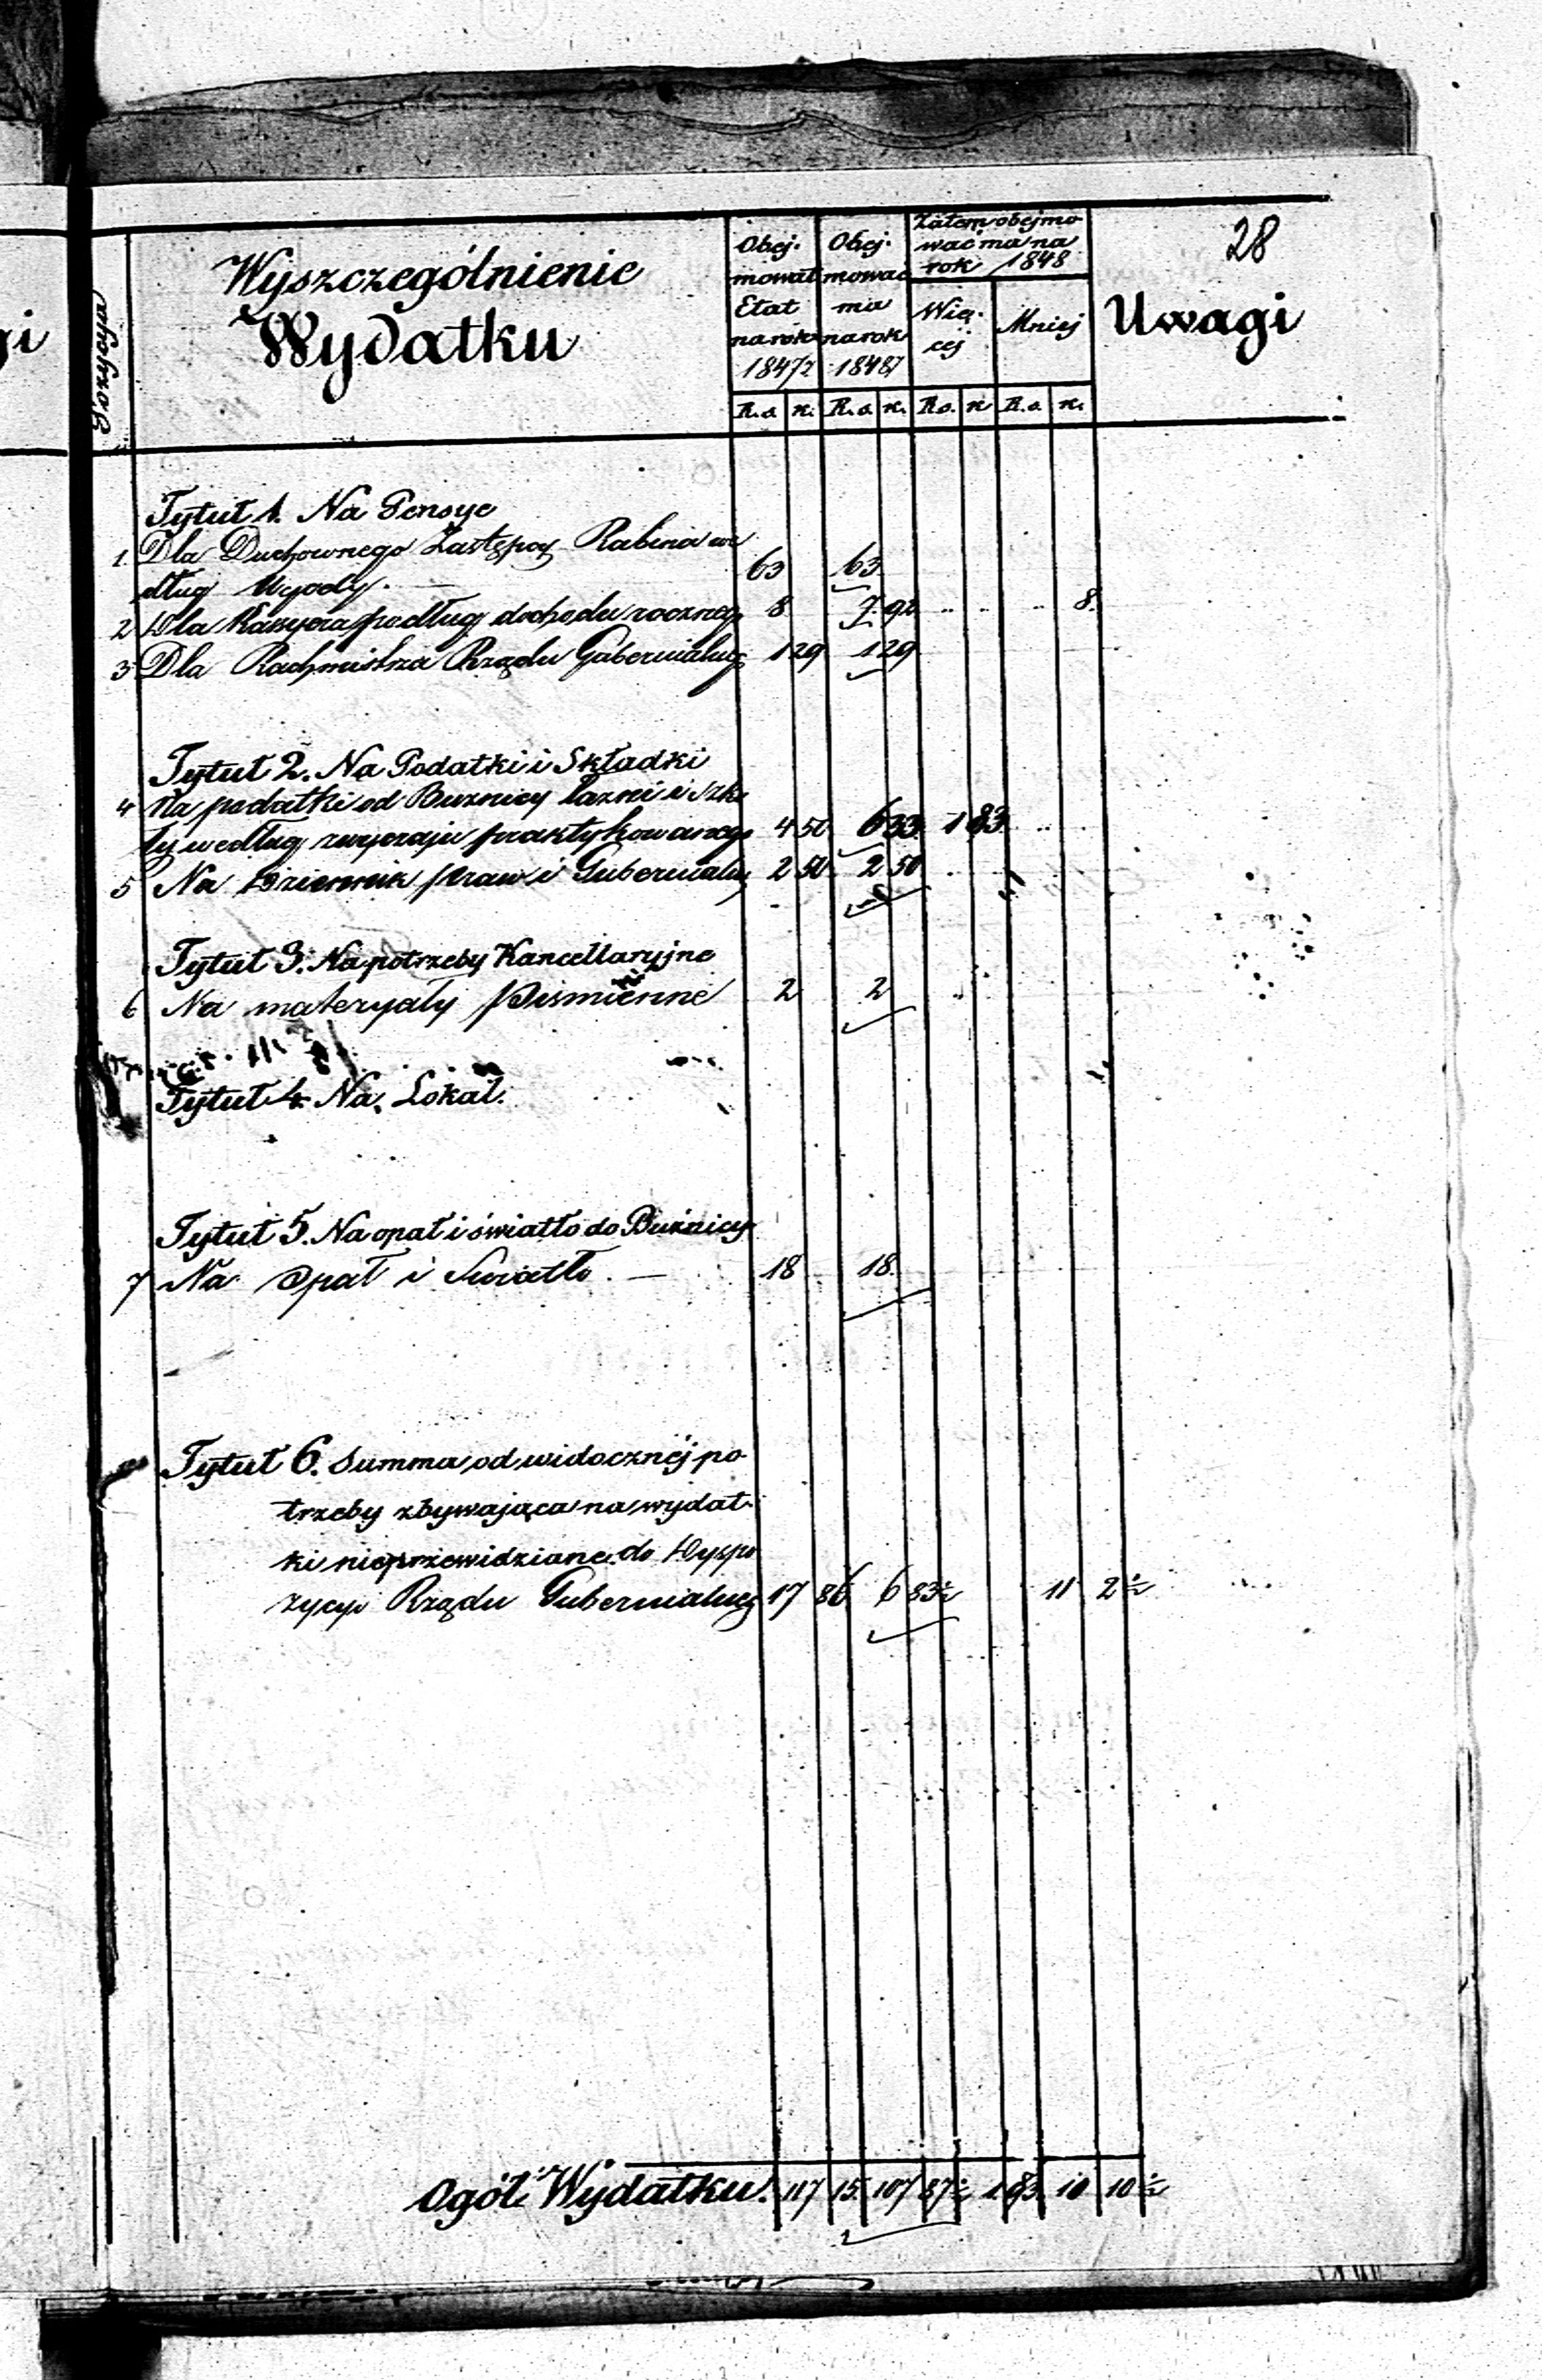 28
Wyszczególnienie
Wydatku
Obej-
mował
Etat
na rok
1847/2
Obej-
mować
ma
na rok
1848/7
Zatem obejmo
wać ma na
rok 1848
Wię-
cej
Mniej
Uwagi
R.s. k. R.s. k. R.s. k. R.s. k.
Tytuł 1. Na Pensye
1 Dla Duchownego Zastępcy Rabina we
dług Ugody. — 63 63
2 Dla Kassyera podług dochodu roczneg 8 7 92 .. .. .. 8.
3 Dla Rachmistrza Rządu Gubernialneg 1 29 1 29
Tytuł 2. Na Podatki i Składki
4 Na podatki od Buznicy łazni i Szko
ły według zwyczaju praktykowanego 4 50 6 33 1 83 ..
5 Na Dziennik praw i Gubernialny 2 50 2 50
Tytuł 3. Na potrzeby Kancellaryjne
6 Na materyały piśmienne 2 2
Tytuł 4. Na Lokal.
Tytuł 5. Na opał i światło do Buźnicy
7 Na Opał i Swiatło. — 18 18
Tytuł 6. Summa od widocznéj po
trzeby zbywająca na wydat-
ki nieprzewidziane do Dyspo
zycyi Rządu Gubernialneg 17 86 6 83½ 11 2½
Ogół Wydatku. 117 15 107 87½ 1 83 10 10½